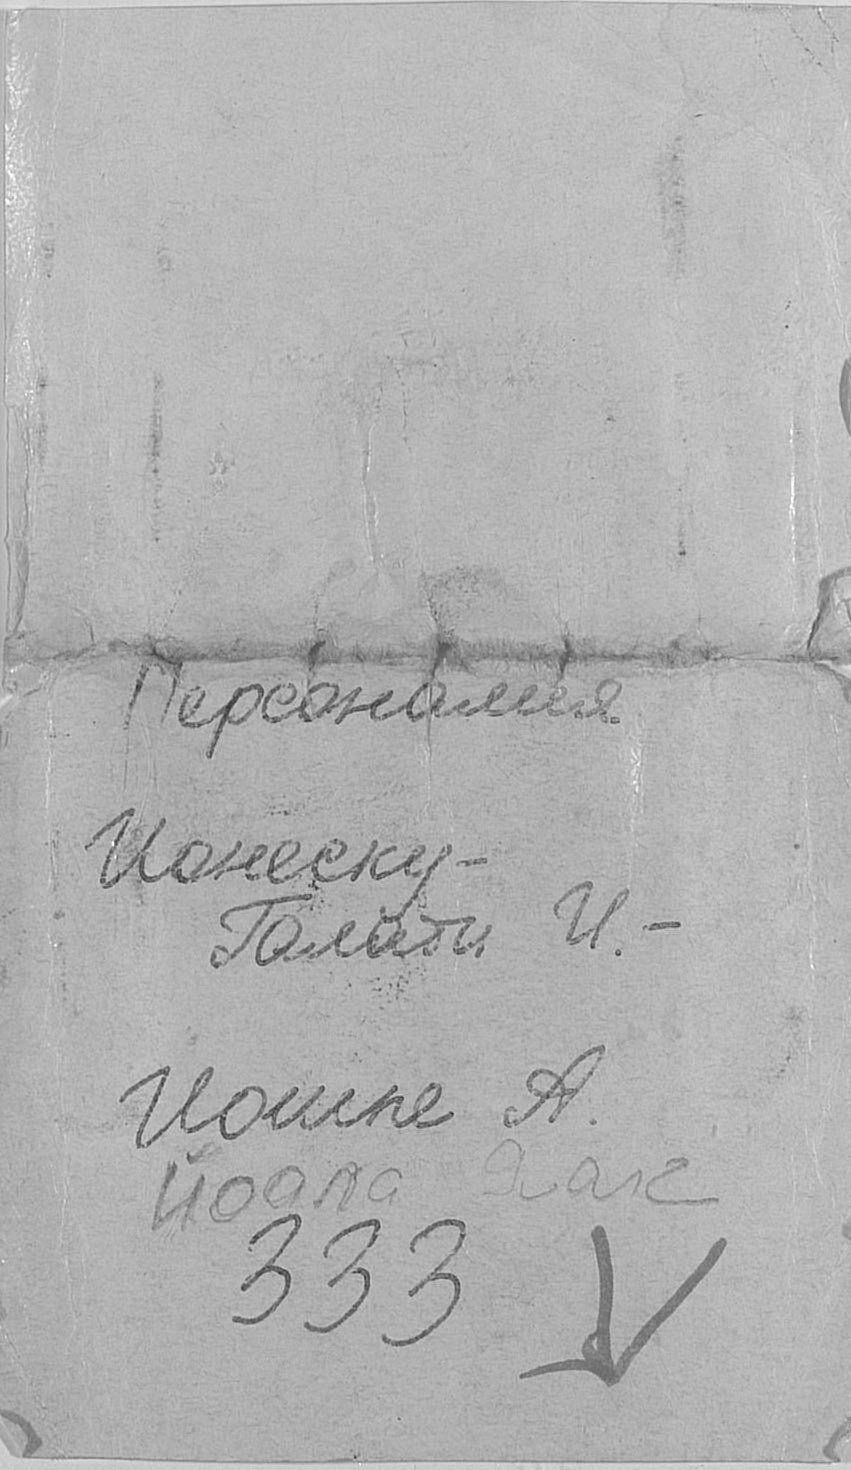 Персоналия
Ионеску-
Галати И.-
Иошпе А.
Йоала Яак
333